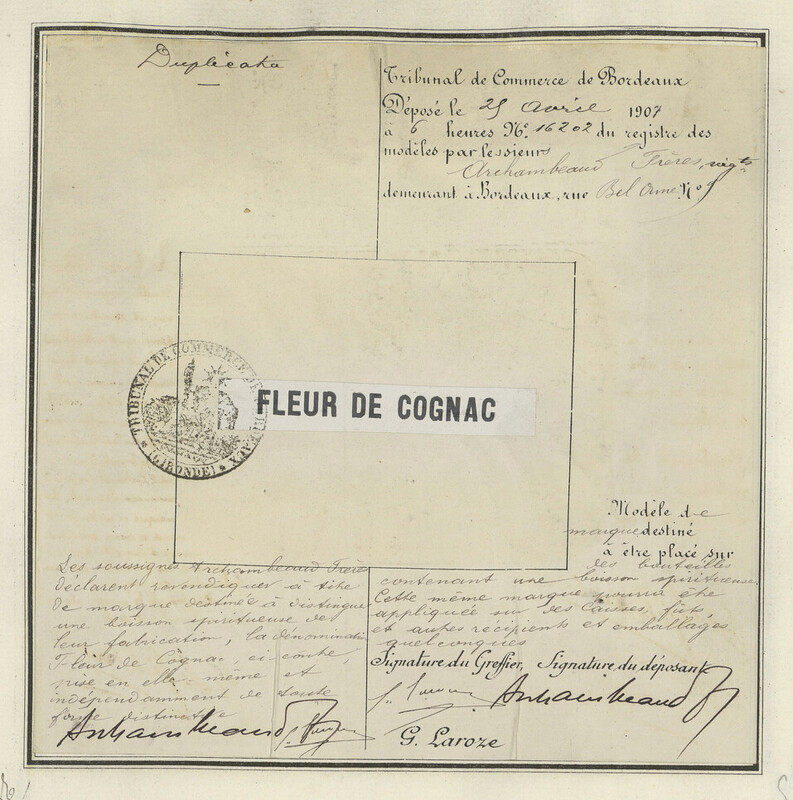 Duplicata
Tribunal de Commerce de Bordeaux
Déposé le 25 Avril 1907
à 6 heures N° 16202 du registre des
modèles par les sieurs
Archambeaud Frères, négts
demeurant à Bordeaux, rue Bel Orme N°
TRIBUNAL DE COMMERCE DE BORDEAUX
* (GIRONDE) *
FLEUR DE COGNAC
Modèle de
marque destiné
à être placé sur
des bouteilles
contenant une boisson spiritueuse
Cette même marque pourra être
appliquée sur des caisses, fûts,
et autres récipients et emballages
quelconques
Les soussignés Archambeaud Frères
déclarent revendiquer à titre
de marque destinée à distinguer
une boisson spiritueuse de
leur fabrication, la dénomination
Fleur de Cognac, ci-contre,
prise en elle-même et
indépendamment de toute
forme distinctive
Archambeaud
Signature du Greffier, Signature du déposant
Archambeaud
G. Laroze